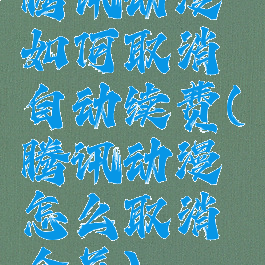 腾讯动漫
如何取消
自动续费(
腾讯动漫
怎么取消
会员)